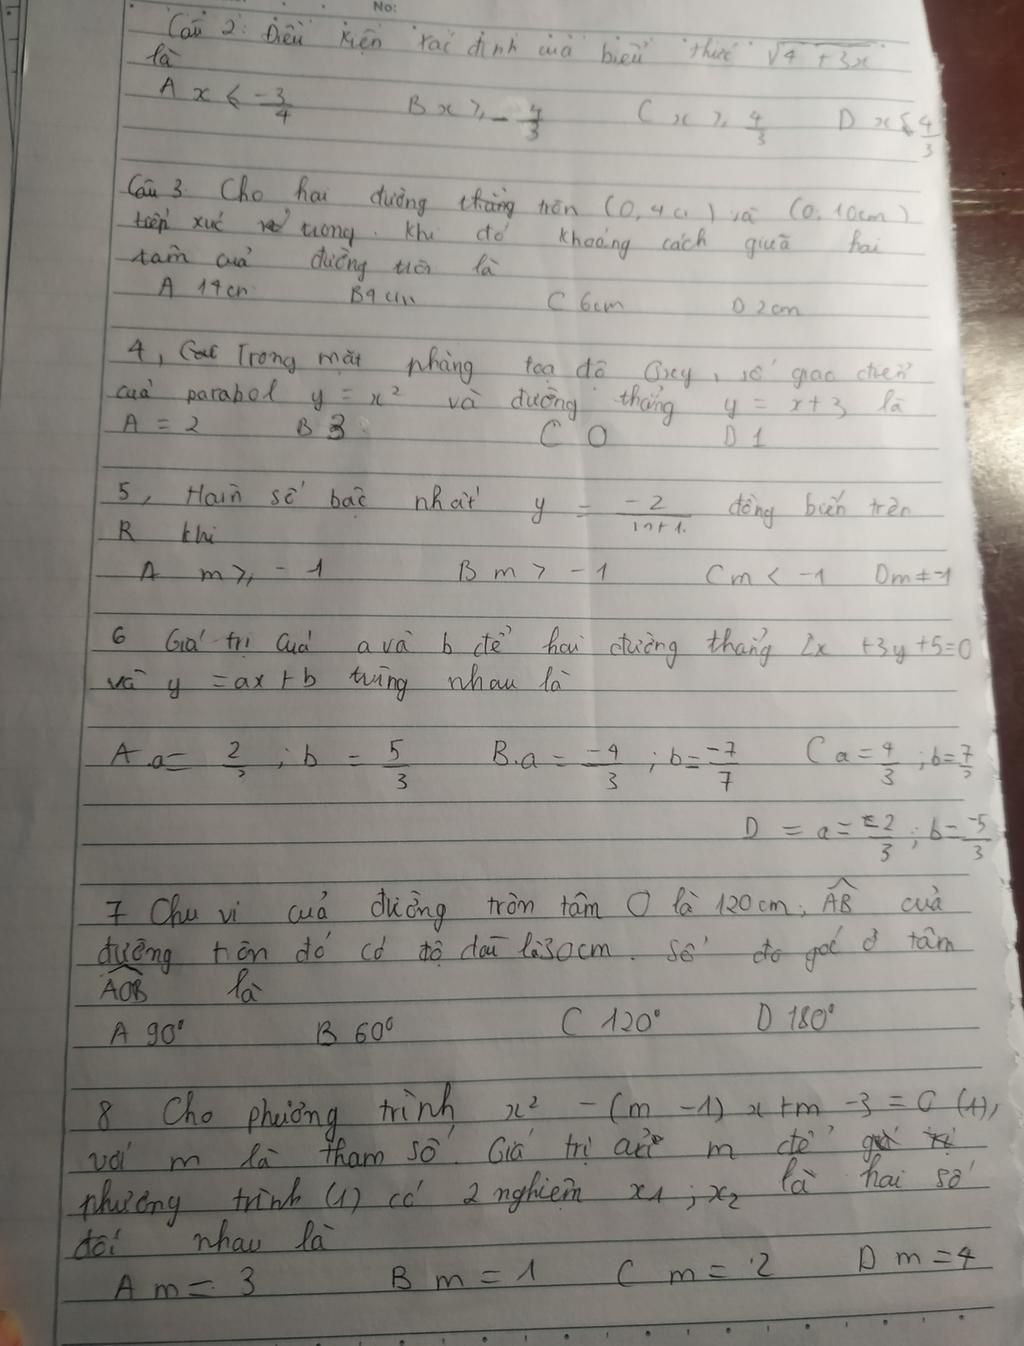 No:
Câu 2: Điều kiện xác định của biểu thức √4 + 3x
là
A x < -3/4 B x ⩾ - 4/3 C x ⩾ 4/3 D x ⩽ 4/3
Câu 3. Cho hai đường thẳng tròn (0, 4c ) và (0, 10cm)
tiếp xúc trong. Khi đó khoảng cách giữa hai
tâm của đường tròn là
A 14cm B 4cm C 6cm D 2cm
4, Trong mặt phẳng tọa độ Oxy, số giao điểm
của parabol y = x² và đường thẳng y = x+3 là
A = 2 B 3 C 0 D 1
5, Hàm số bậc nhất y = -2/m+1 đồng biến trên
R khi
A m ⩾ -1 B m > -1 C m < -1 D m ≠ -1
6 Giá trị của a và b để hai đường thẳng 2x +3y+5=0
và y =ax+b trùng nhau là
A a= 2/3 ; b = 5/3 B. a = -4/3 ; b= -7/7 C a= 4/3 ; b= 7/3
D = a= -2/3 ; b= -5/3
7 Chu vi của đường tròn tâm O là 120cm, AB của
đường tròn đó có độ dài là 30cm. Số đo góc ở tâm
AOB là
A 90° B 60° C 120° D 180°
8 Cho phương trình x² -(m -1) x +m -3 = 0 (1),
với m là tham số. Giá trị của m để
phương trình (1) có 2 nghiệm x1 ; x2 là hai số
đối nhau là
A m = 3 B m = 1 C m = 2 D m = 4